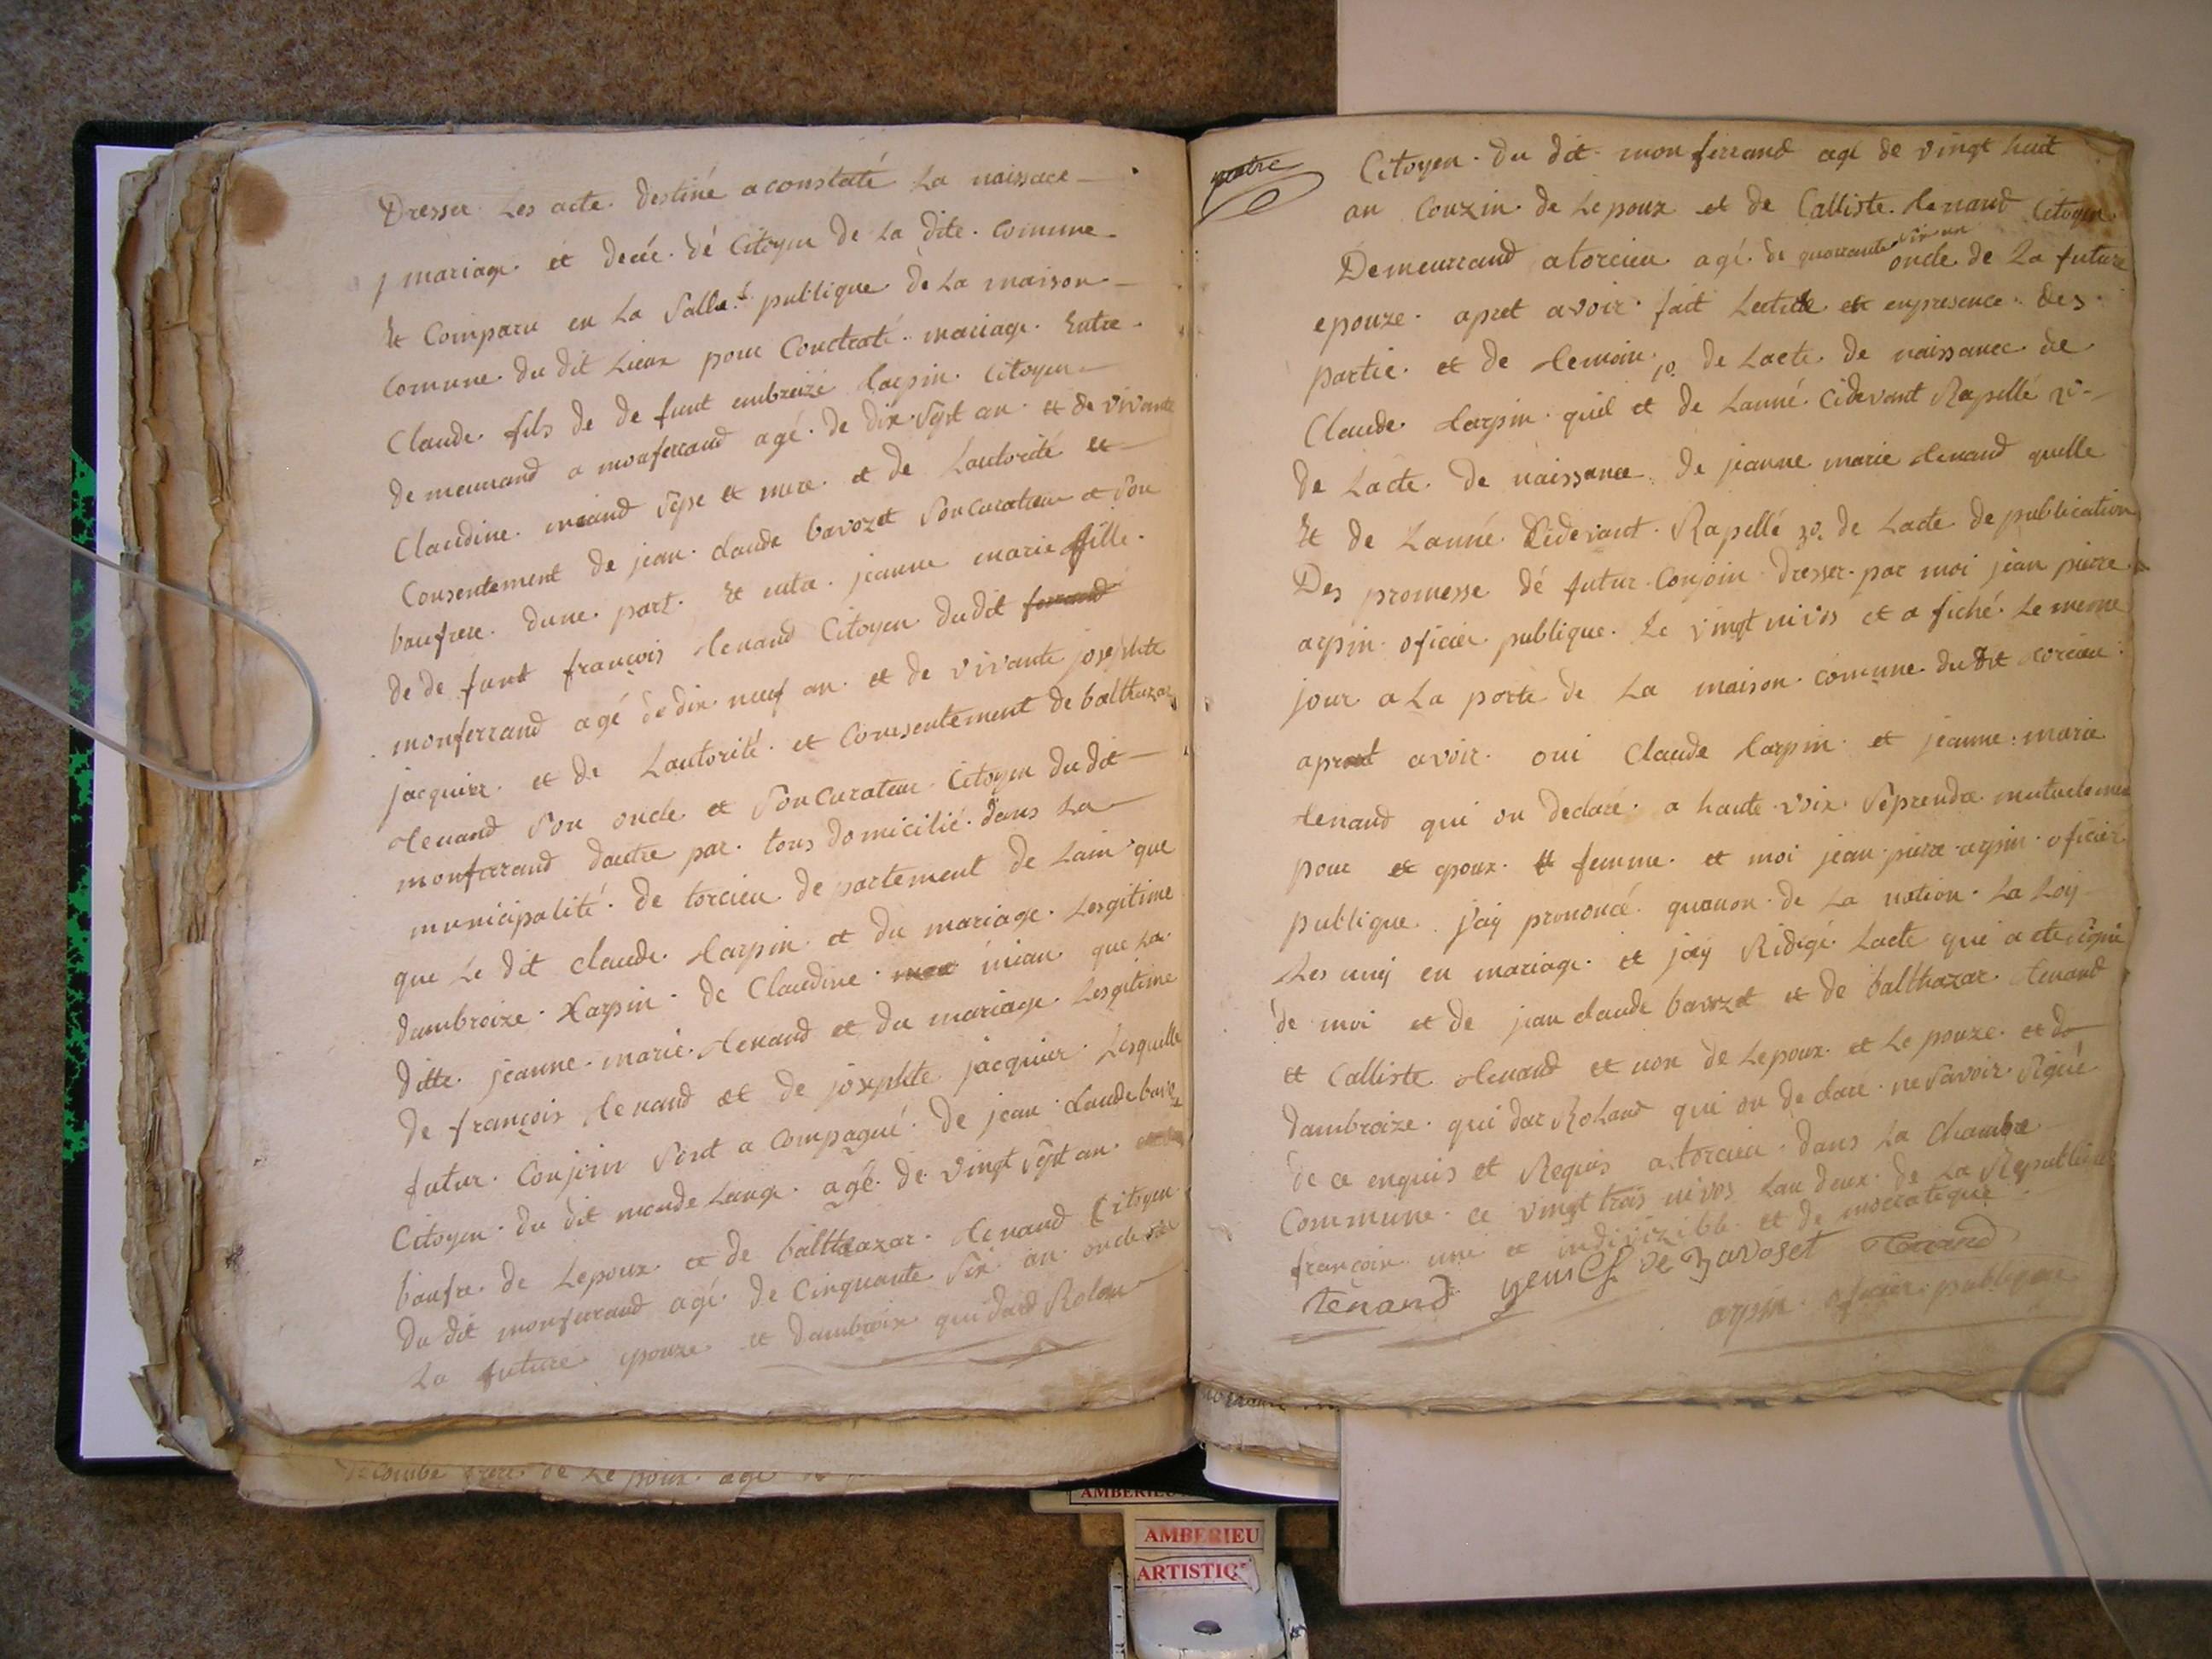 Dresser Les acte destiné a constaté La naissace
mariage et decé dé Citoyen de La dite Comune
Et Comparu en La Salle publique de La maison
Comune du dit Lieux pour Conctraté mariage Entre
Claude fils de de funt embroize tarpin Citoyen
demeurand a monferrand agé de dix Sept an et de vivante
Claudine miand Sepe et mere et de Lautorité et
Consentement de jean claude bavozet Son Curateur et Son
baufrere dune part Et entre jeanne marie fille
de de funt françois tenand Citoyen du dit
monferrand agé de dix neuf an et de vivante josephte
jacquier et de Lautorité et Consentement de balthazar
tenand Son oncle et Son Curateur Citoyen du dit
monferrand dautre par tous domicilié dans La
municipalité de torcieu departement de Lain que
que Le dit claude tarpin et du mariage Lesgitime
dambroize tarpin de Claudine mian que La
ditte jeanne marie tenand et du mariage Lesgitime
de françois tenand et de josephte jacquier Lesquelle
futur Conjoin Sont a Compagné de jean claude bavoz
Citoyen du dit monde Lange agé de vingt Sept an
baufre de Lepoux et de balthazar tenand Citoyen
du dit monferrand agé de Cinquante Six an oncle de
La future epouze et dambroize quidard Rolan
Citoyen du dit mon ferrand agé de vingt huit
an Couzin de Lepoux et de Calliste tenand Citoyen
Demeurrand a torcieu agé de quarrante six an oncle de La future
epouze apret avoir fait Lecture et en presence des
partie et de temoin 10 de Lacte de naissance de
Claude tarpin quil et de Lanné Cidevant Rapellé 20
de Lacte de naissance de jeanne marie tenand quelle
Et de Lanné Cidevant Rapellé 30 de Lacte de publication
Des promesse dé futur Conjoin dresser par moi jean pierre
arpin oficier publique Le vingt nivos et a fiché Le meme
jour a La porte de La maison Comune du dit torcieu
apret avoir oui Claude tarpin et jeanne marie
tenand qui on declaré a haute voix Seprendre mutuelemen
pour et epoux et femme et moi jean pierre arpin oficier
publique jaÿ prononcé quanon de La nation La Loy
Les unÿ en mariage et jaÿ Ridigé Lacte qui a eté Signé
de moi et de jean claude bavozet et de balthazar tenand
et Calliste tenand et non de Lepoux et Le pouze et de
dambroize qui dar Roland qui on de claré ne Savoir Signé
de ce enquis et Requis a torcieu dans La Chambre
Commune ce vingt trois nivos Lan deux de La Republique
françoise une et indivizible et de mocratique
tenand de Bavoset tenand
arpin oficier publique
AMBERIEU
ARTISTIQ